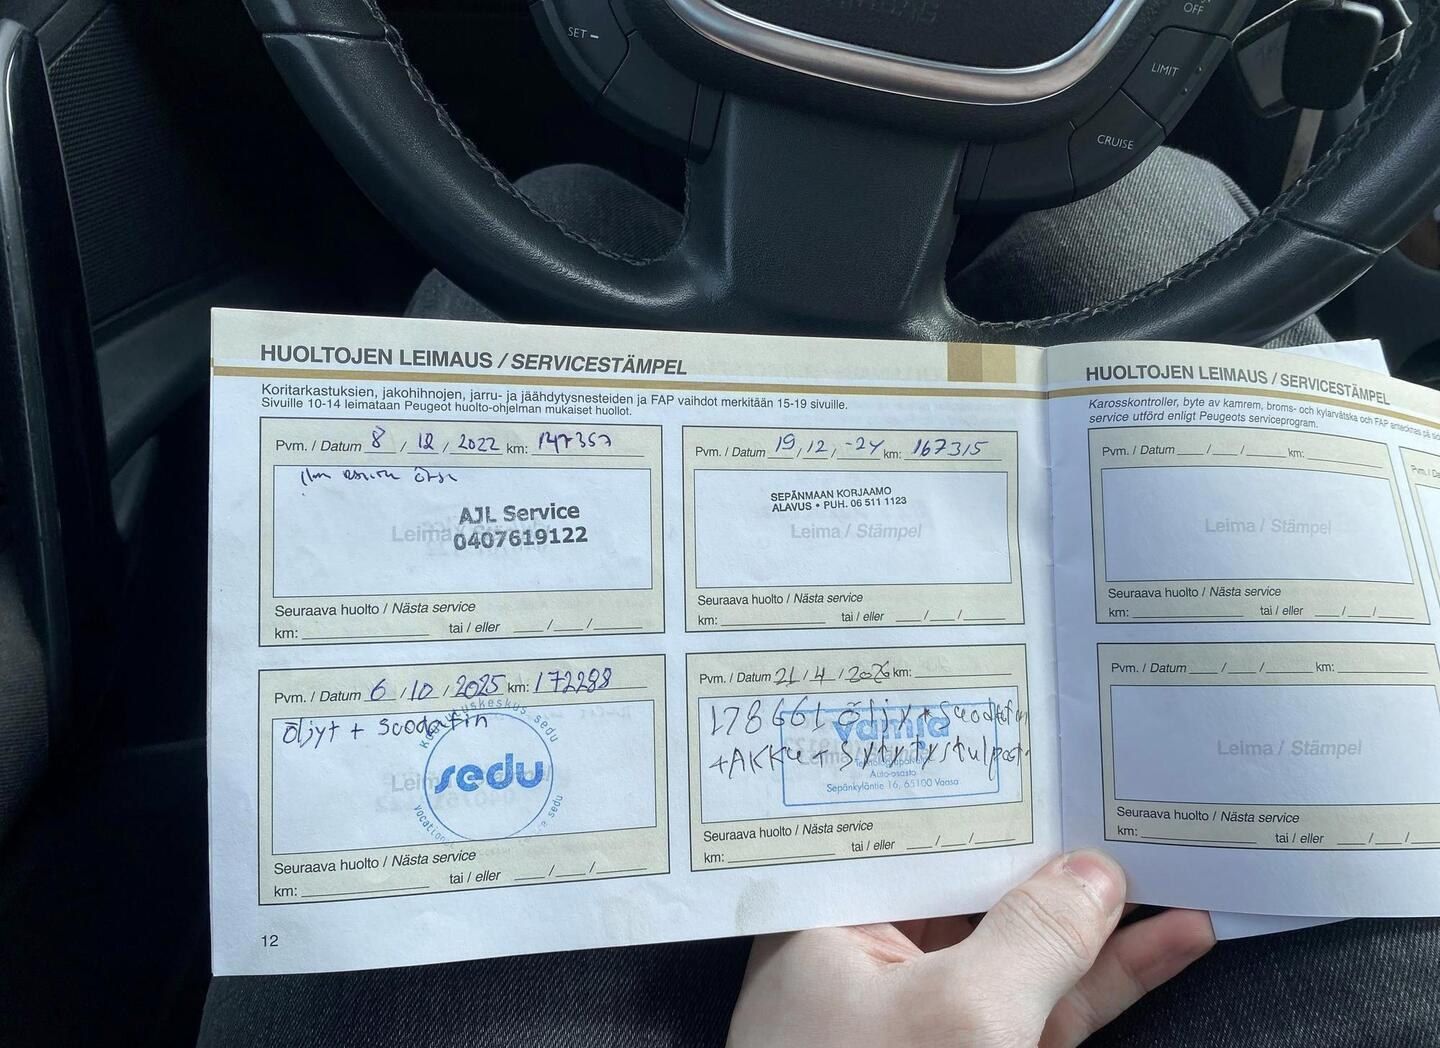 SET –
OFF
LIMIT
CRUISE
HUOLTOJEN LEIMAUS / SERVICESTÄMPEL
Koritarkastuksien, jakohihnojen, jarru- ja jäähdytysnesteiden ja FAP vaihdot merkitään 15-19 sivuille.
Sivuille 10-14 leimataan Peugeot huolto-ohjelman mukaiset huollot.
Pvm. / Datum 8 / 12 / 2022 km: 147357
AJL Service
0407619122
Leima / Stämpel
Seuraava huolto / Nästa service
km: tai / eller / /
Pvm. / Datum 19 / 12 / -24 km: 167315
SEPÄNMAAN KORJAAMO
ALAVUS • PUH. 06 511 1123
Leima / Stämpel
Seuraava huolto / Nästa service
km: tai / eller / /
Pvm. / Datum 6 / 10 / 2025 km: 172288
Öljyt + Suodatin
sedu
Seuraava huolto / Nästa service
km: tai / eller / /
Pvm. / Datum 21 / 4 / 2026 km:
178661 Öljyt + Suodatin
+ AKKu + Sytytystulpat
vamia
Auto-osasto
Sepänkyläntie 16, 65100 Vaasa
Seuraava huolto / Nästa service
km: tai / eller / /
12
HUOLTOJEN LEIMAUS / SERVICESTÄMPEL
Karosskontroller, byte av kamrem, broms- och kylarvätska och FAP antecknas på
service utförd enligt Peugeots serviceprogram.
Pvm. / Datum / / km:
Leima / Stämpel
Seuraava huolto / Nästa service
km: tai / eller / /
Pvm. / Datum / / km:
Leima / Stämpel
Seuraava huolto / Nästa service
km: tai / eller / /